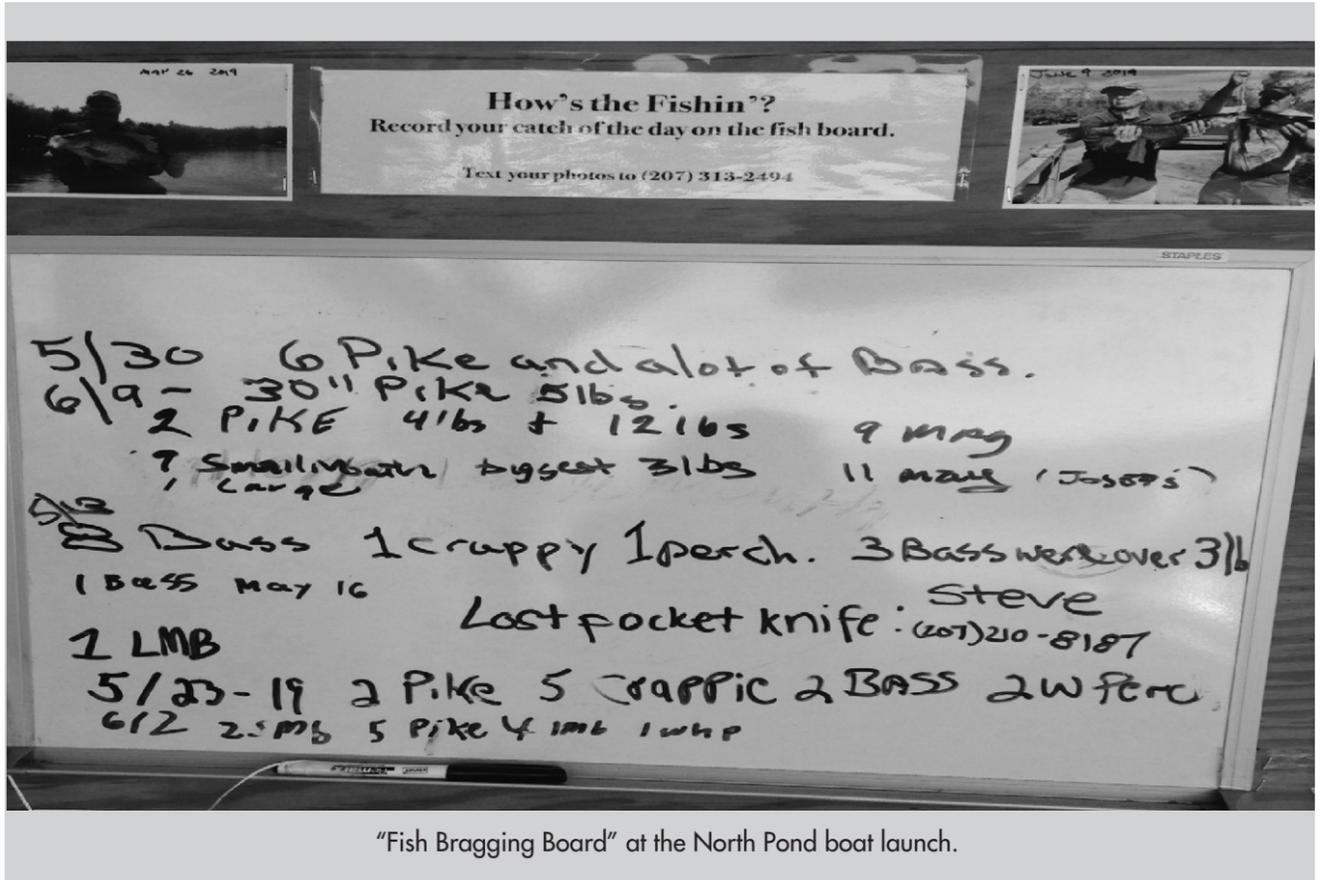 MAY 26 2019
How's the Fishin'?
Record your catch of the day on the fish board.
Text your photos to (207) 313-2494
June 9 2019
STAPLES
5/30 6 Pike and alot of Bass.
6/9 - 30" Pike 5lbs.
2 PIKE 4lbs + 12lbs 9
biggest 3lbs 11
Large
8 Bass 1crappy 1perch. 3Bass were over 3lb
1 Bass May 16
Lost pocket knife: Steve
(207)210-8187
1 LMB
5/23-19 2 Pike 5 Crappic 2 BASS 2W Perc
6/2 5 Pike 4 lmb 1 whp
"Fish Bragging Board" at the North Pond boat launch.